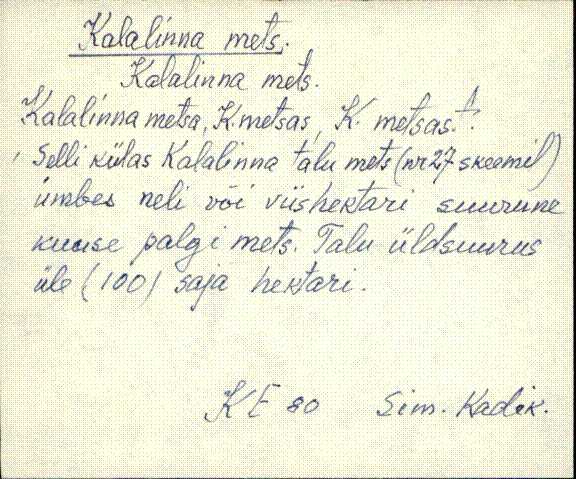 Kalalinna mets.
Kalalinna mets.
Kalalinna metsa, K. metsas, K. metsast.
Selli külas Kalalinna talu mets (nr 27 skeemil)
ümbes neli või viis hektari suurune
kuuse palgi mets. Talu üldsuurus
üle (100) saja hektari.
KE 80 Sim. Kadik.